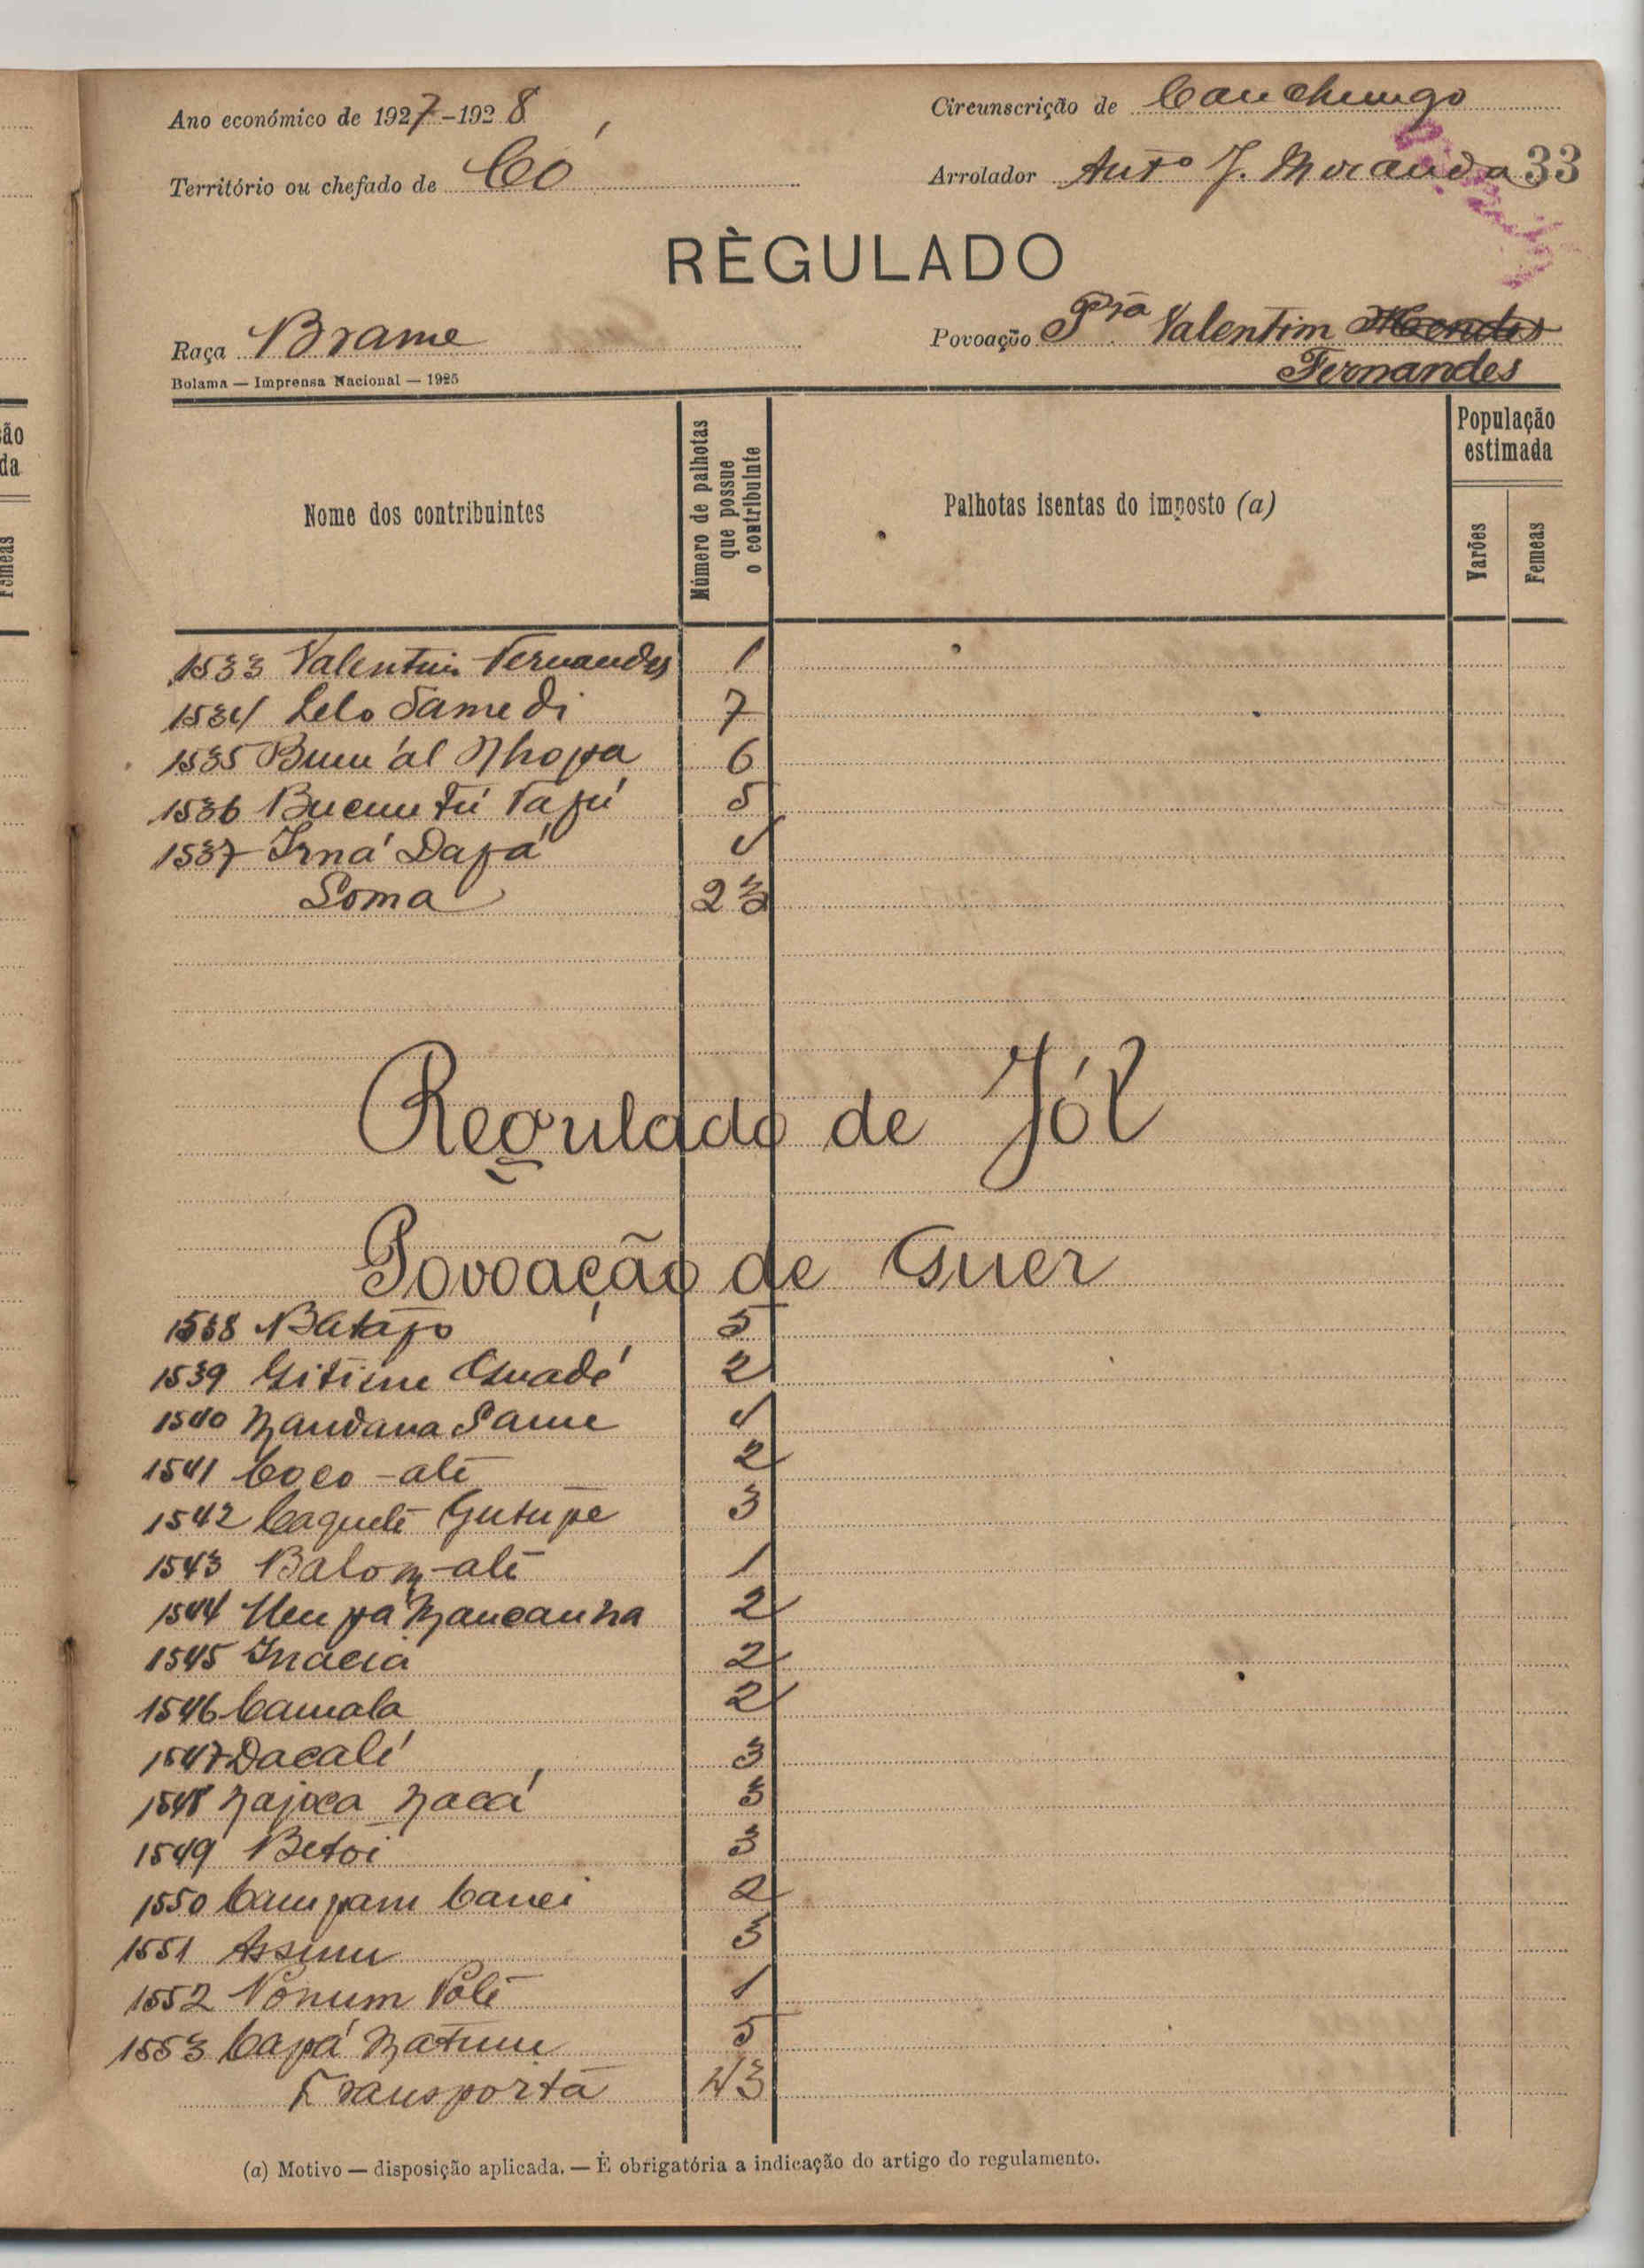 Ano económico de 1927-1928
Circunscrição de Canchungo
Território ou chefado de Có
Arrolador Antº J. Miranda 33
RÈGULADO
Raça Brame
Povoação Pta Valentim Mendes
Fernandes
Bolama — Imprensa Nacional — 1925
Nome dos contribuintes
Número de palhotas que possue o contribuinte
Palhotas isentas do imposto (a)
População estimada
Varões
Femeas
1533 Valentim Fernandes 1
1534 Lelo Samedi 7
1535 Bum'al Nhopa 6
1536 Bucum Tú Tafú 5
1537 Irná Dapá 4
Soma 23
Regulado de Jól
Povoação de Guer
1538 Batápo 5
1539 Gitime Quadé 2
1540 Nandana Same 4
1541 Coco-até 2
1542 Caqueté Gutúpe 3
1543 Balom-até 1
1544 Um pá Mancanha 2
1545 Inácia 2
1546 Camala 2
1547 Dacalé 3
1548 Najoca Nacá 3
1549 Betoi 3
1550 Campam Canei 2
1551 Assum 3
1552 Nonum Polé 1
1553 Capá Natum 5
Transporta 43
(a) Motivo — disposição aplicada. — É obrigatória a indicação do artigo do regulamento.